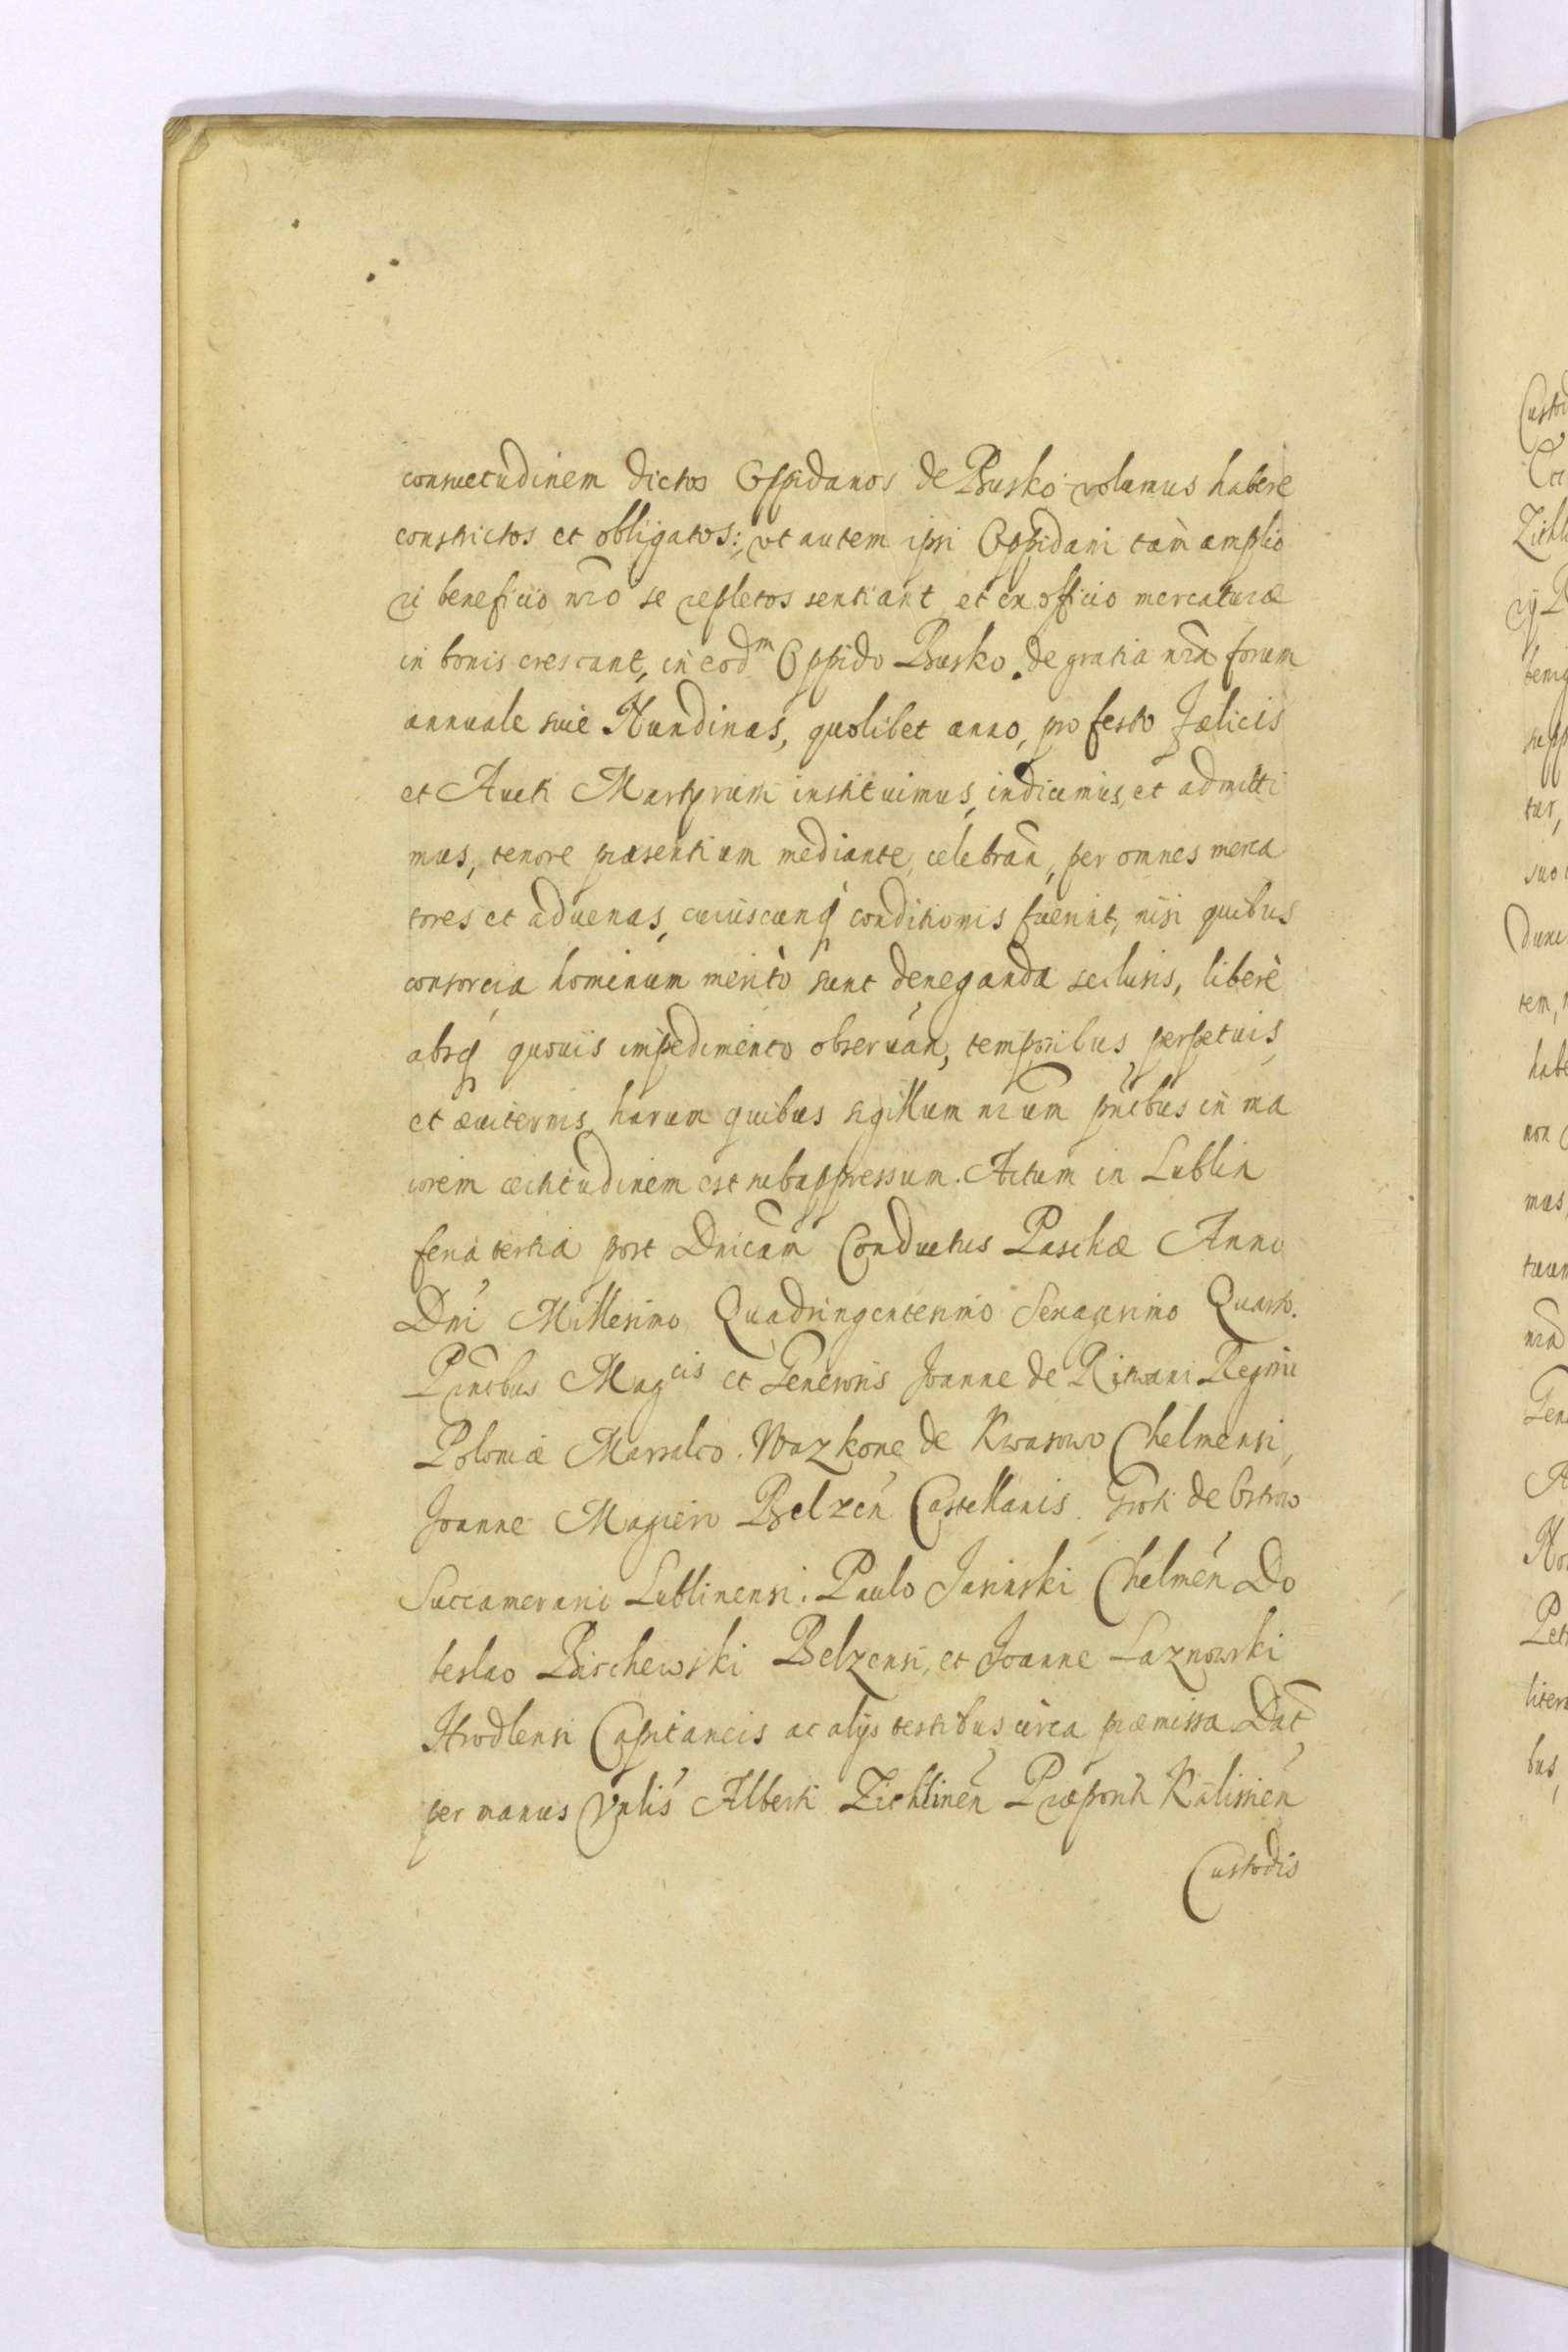 consuetudinem dictos Oppidanos de Busko volumus habere
constrictos et obligatos:, vt autem ipsi Oppidani tàm amplio
ri beneficio nr̃o se repletos sentiant et in officio mercaturæ
in bonis crescant, in eodm Oppido Busko. de gratia nr̃a forum
annuale siue Nundinas, quolibet anno, pro festo Fælicis
et Aucti Martyrum instituimus, indicimus, et admitti
mus, tenore præsentium mediante, celebrañ, per omnes merca
tores et aduenas, cuiuscunq́ conditionis fuerint, nisi quibus
consorcia hominum meritò sunt deneganda seclusis, liberè
absq́ quouis impedimento obseruañ, temporibus perpetuis,
et æuiternis, harum quibus sigillum nr̃um pñtibus in ma
iorem certitudinem est subappressum. Actum in Lublin
feria tertia post Dnicam̃ Conductus Paschæ Anno
Dni Millesimo Quadringentesimo Sexagesimo Quarto.
Pr̃ntibus Magcis et Generosis Joanne de Ritwani Regni
Poloniæ Marsalco. Wazkone de Kwasowo Chelmensi,
Joanne Magiero Belzeñ Castellanis. Groti de Ostrow
Succamerario Lublinensi. Paulo Jasinski Chelmeñ Do
beslao Bischewski Belzensi, et Joanne Laznowski
Hrodlensi Capitaneis ac alijs testibus circa præmissa. Dat̃
per manus Vnlis Alberti Zichlineñ Præpositi Kalissień
Custodis